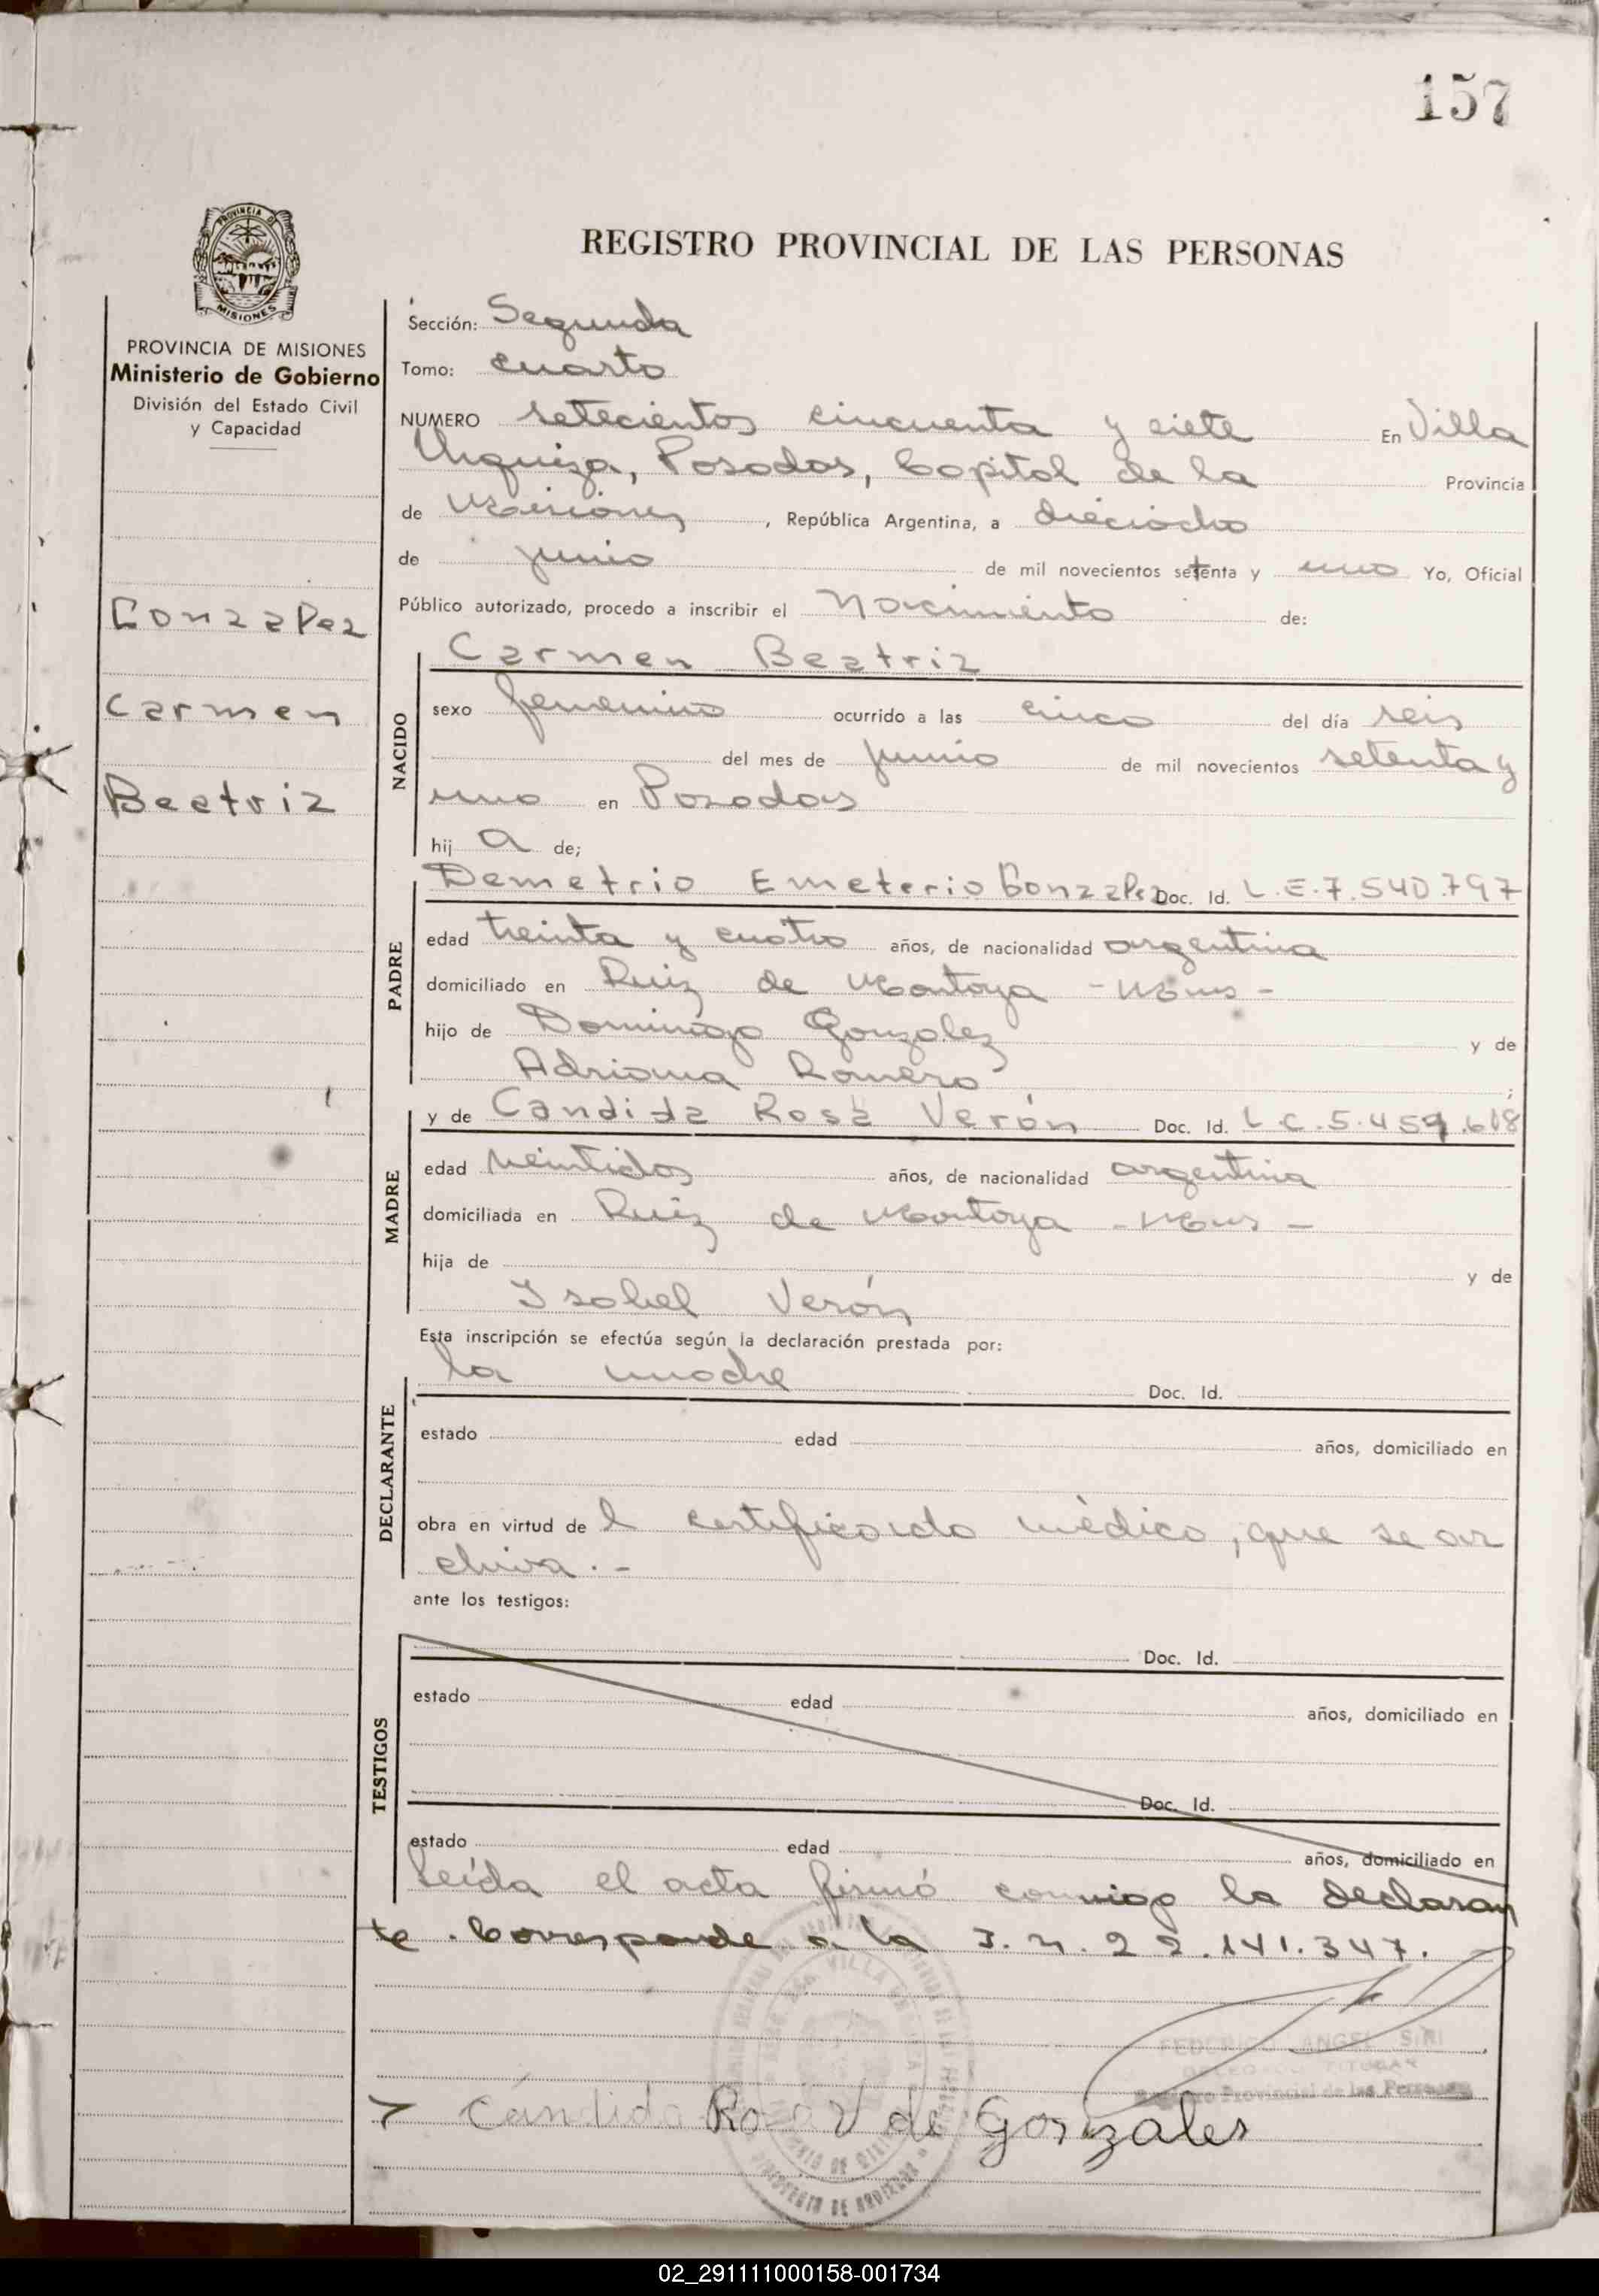 157
PROVINCIA DE
MISIONES
REGISTRO PROVINCIAL DE LAS PERSONAS
PROVINCIA DE MISIONES
Ministerio de Gobierno
División del Estado Civil
y Capacidad
Gonzalez
Carmen
Beatriz
Sección: Segunda
Tomo: cuarto
NUMERO setecientos cincuenta y siete En Villa
Urquiza, Posadas, Capital de la Provincia
de Misiones, República Argentina, a dieciocho
de junio de mil novecientos setenta y uno Yo, Oficial
Público autorizado, procedo a inscribir el Nacimiento de:
NACIDO
Carmen Beatriz
sexo femenino ocurrido a las cinco del día seis
del mes de junio de mil novecientos setenta y
uno en Posadas
hij a de;
PADRE
Demetrio Emeterio Gonzalez Doc. Id. L.E.7.540.797
edad treinta y cuatro años, de nacionalidad argentina
domiciliado en Ruiz de Montoya - Mnes -
hijo de Domingo Gonzalez y de
Adriana Romero ;
MADRE
y de Candida Rosa Verón Doc. Id. L.C.5.459.618
edad veintidos años, de nacionalidad argentina
domiciliada en Ruiz de Montoya - Mnes -
hija de y de
Isabel Verón
Esta inscripción se efectúa según la declaración prestada por:
DECLARANTE
la madre Doc. Id.
estado edad años, domiciliado en
obra en virtud de l certificado médico, que se ar
chiva.-
ante los testigos:
TESTIGOS
Doc. Id.
estado edad años, domiciliado en
Doc. Id.
estado edad años, domiciliado en
Leída el acta firmó conmigo la declaran
te. Corresponde a la I.N. 22.141.347.
FEDERICO ANGEL SIRI
DELEGADO TITULAR
Registro Provincial de las Personas
Cándida Rosa V de Gonzales
02_291111000158-001734